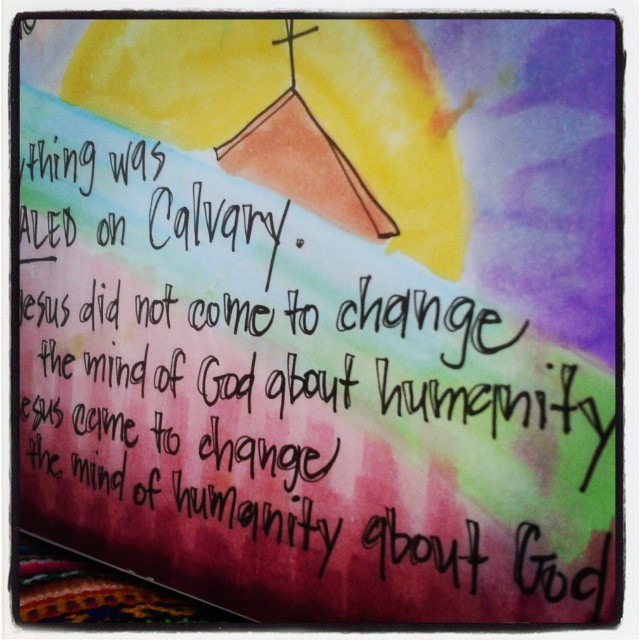 ything was
ALED on Calvary.
Jesus did not come to change
the mind of God about humanity
esus came to change
the mind of humanity about God